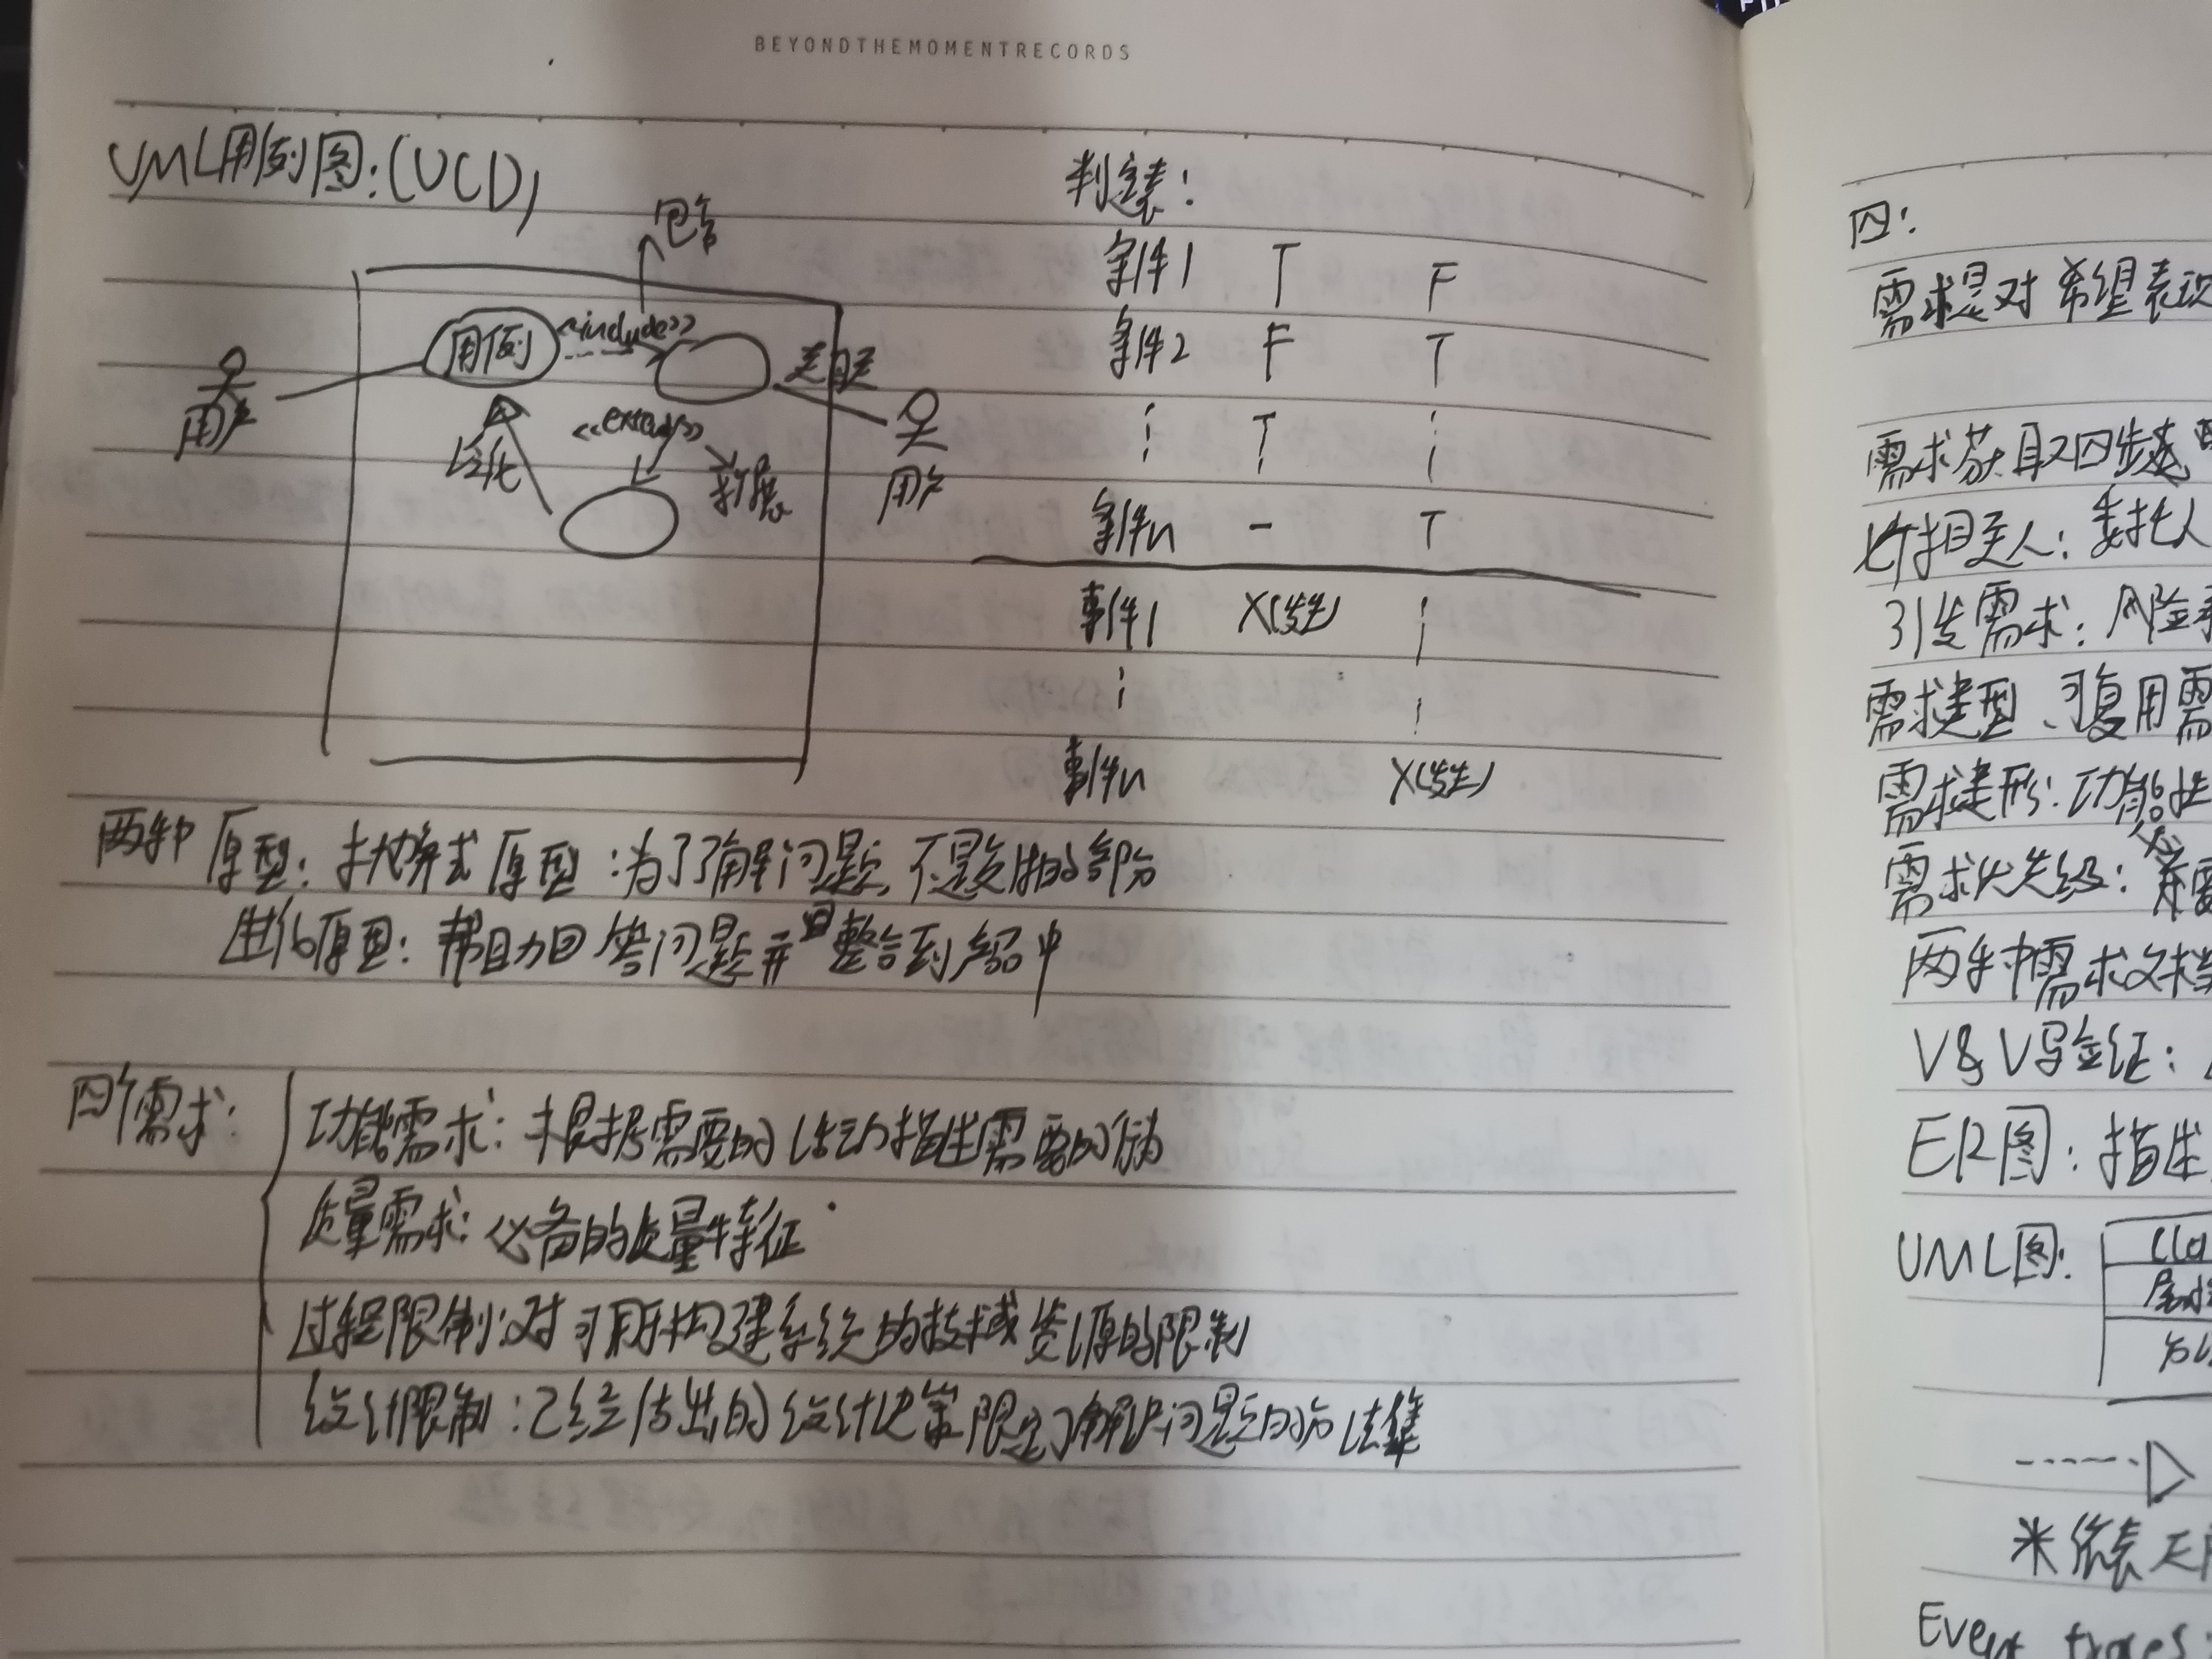 BEYONDTHEMOMENTRECORDS
UML用例图:(UCD)
包含
用例
<<include>>
关联
用户
泛化
<<extends>>
扩展
用户
判定表:
条件1 T F
条件2 F T
⋮ T ⋮
条件n - T
事件1 X(发生) ⋮
⋮ ⋮
事件n X(发生)
两种原型:抛弃式原型:为了了解问题,不是交付的部分
进化原型:帮助回答问题并且整合到产品中
四个需求:
功能需求:根据需要的活动描述需要的行为
质量需求:必备的质量特征
过程限制:对可用于构建系统的技术或资源的限制
设计限制:已经作出的设计决策限定了解决问题的方法集
四:
需求是对希望表现
需求获取四步走
七个相关人:委托人
引发需求:风险
需求建型、可复用需
需求建形:功能性
需求优先级:
两种需求文档
V&V验证:
ER图:描述
UML图:
Cla
属性
方法
米 依赖
Event traces